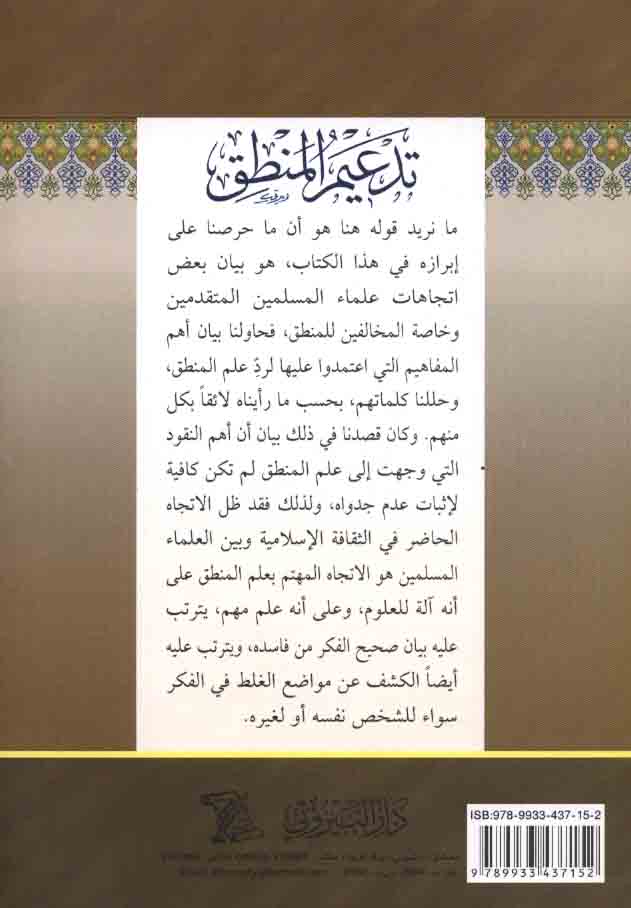 تدعيم المنطق
ما نريد قوله هنا هو أن ما حرصنا على
إبرازه في هذا الكتاب، هو بيان بعض
اتجاهات علماء المسلمين المتقدمين
وخاصة المخالفين للمنطق، فحاولنا بيان أهم
المفاهيم التي اعتمدوا عليها لردِّ علم المنطق،
وحللنا كلماتهم، بحسب ما رأيناه لائقاً بكل
منهم. وكان قصدنا في ذلك بيان أن أهم النقود
التي وجهت إلى علم المنطق لم تكن كافية
لإثبات عدم جدواه، ولذلك فقد ظل الاتجاه
الحاضر في الثقافة الإسلامية وبين العلماء
المسلمين هو الاتجاه المهتم بعلم المنطق على
أنه آلة للعلوم، وعلى أنه علم مهم، يترتب
عليه بيان صحيح الفكر من فاسده، ويترتب عليه
أيضاً الكشف عن مواضع الغلط في الفكر
سواء للشخص نفسه أو لغيره.
دار البيروتي
ISBN:978-9933-437-15-2
9 789933 437152